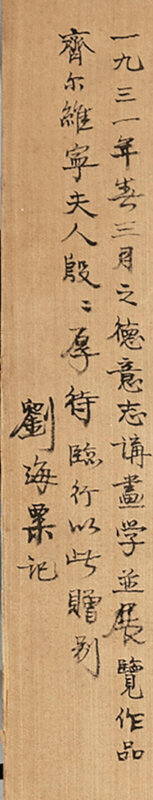 一九三一年春三月之德意志讲畫学並展覽作品
齊尔維寧夫人殷〻厚待臨行以此贈别
劉海粟记